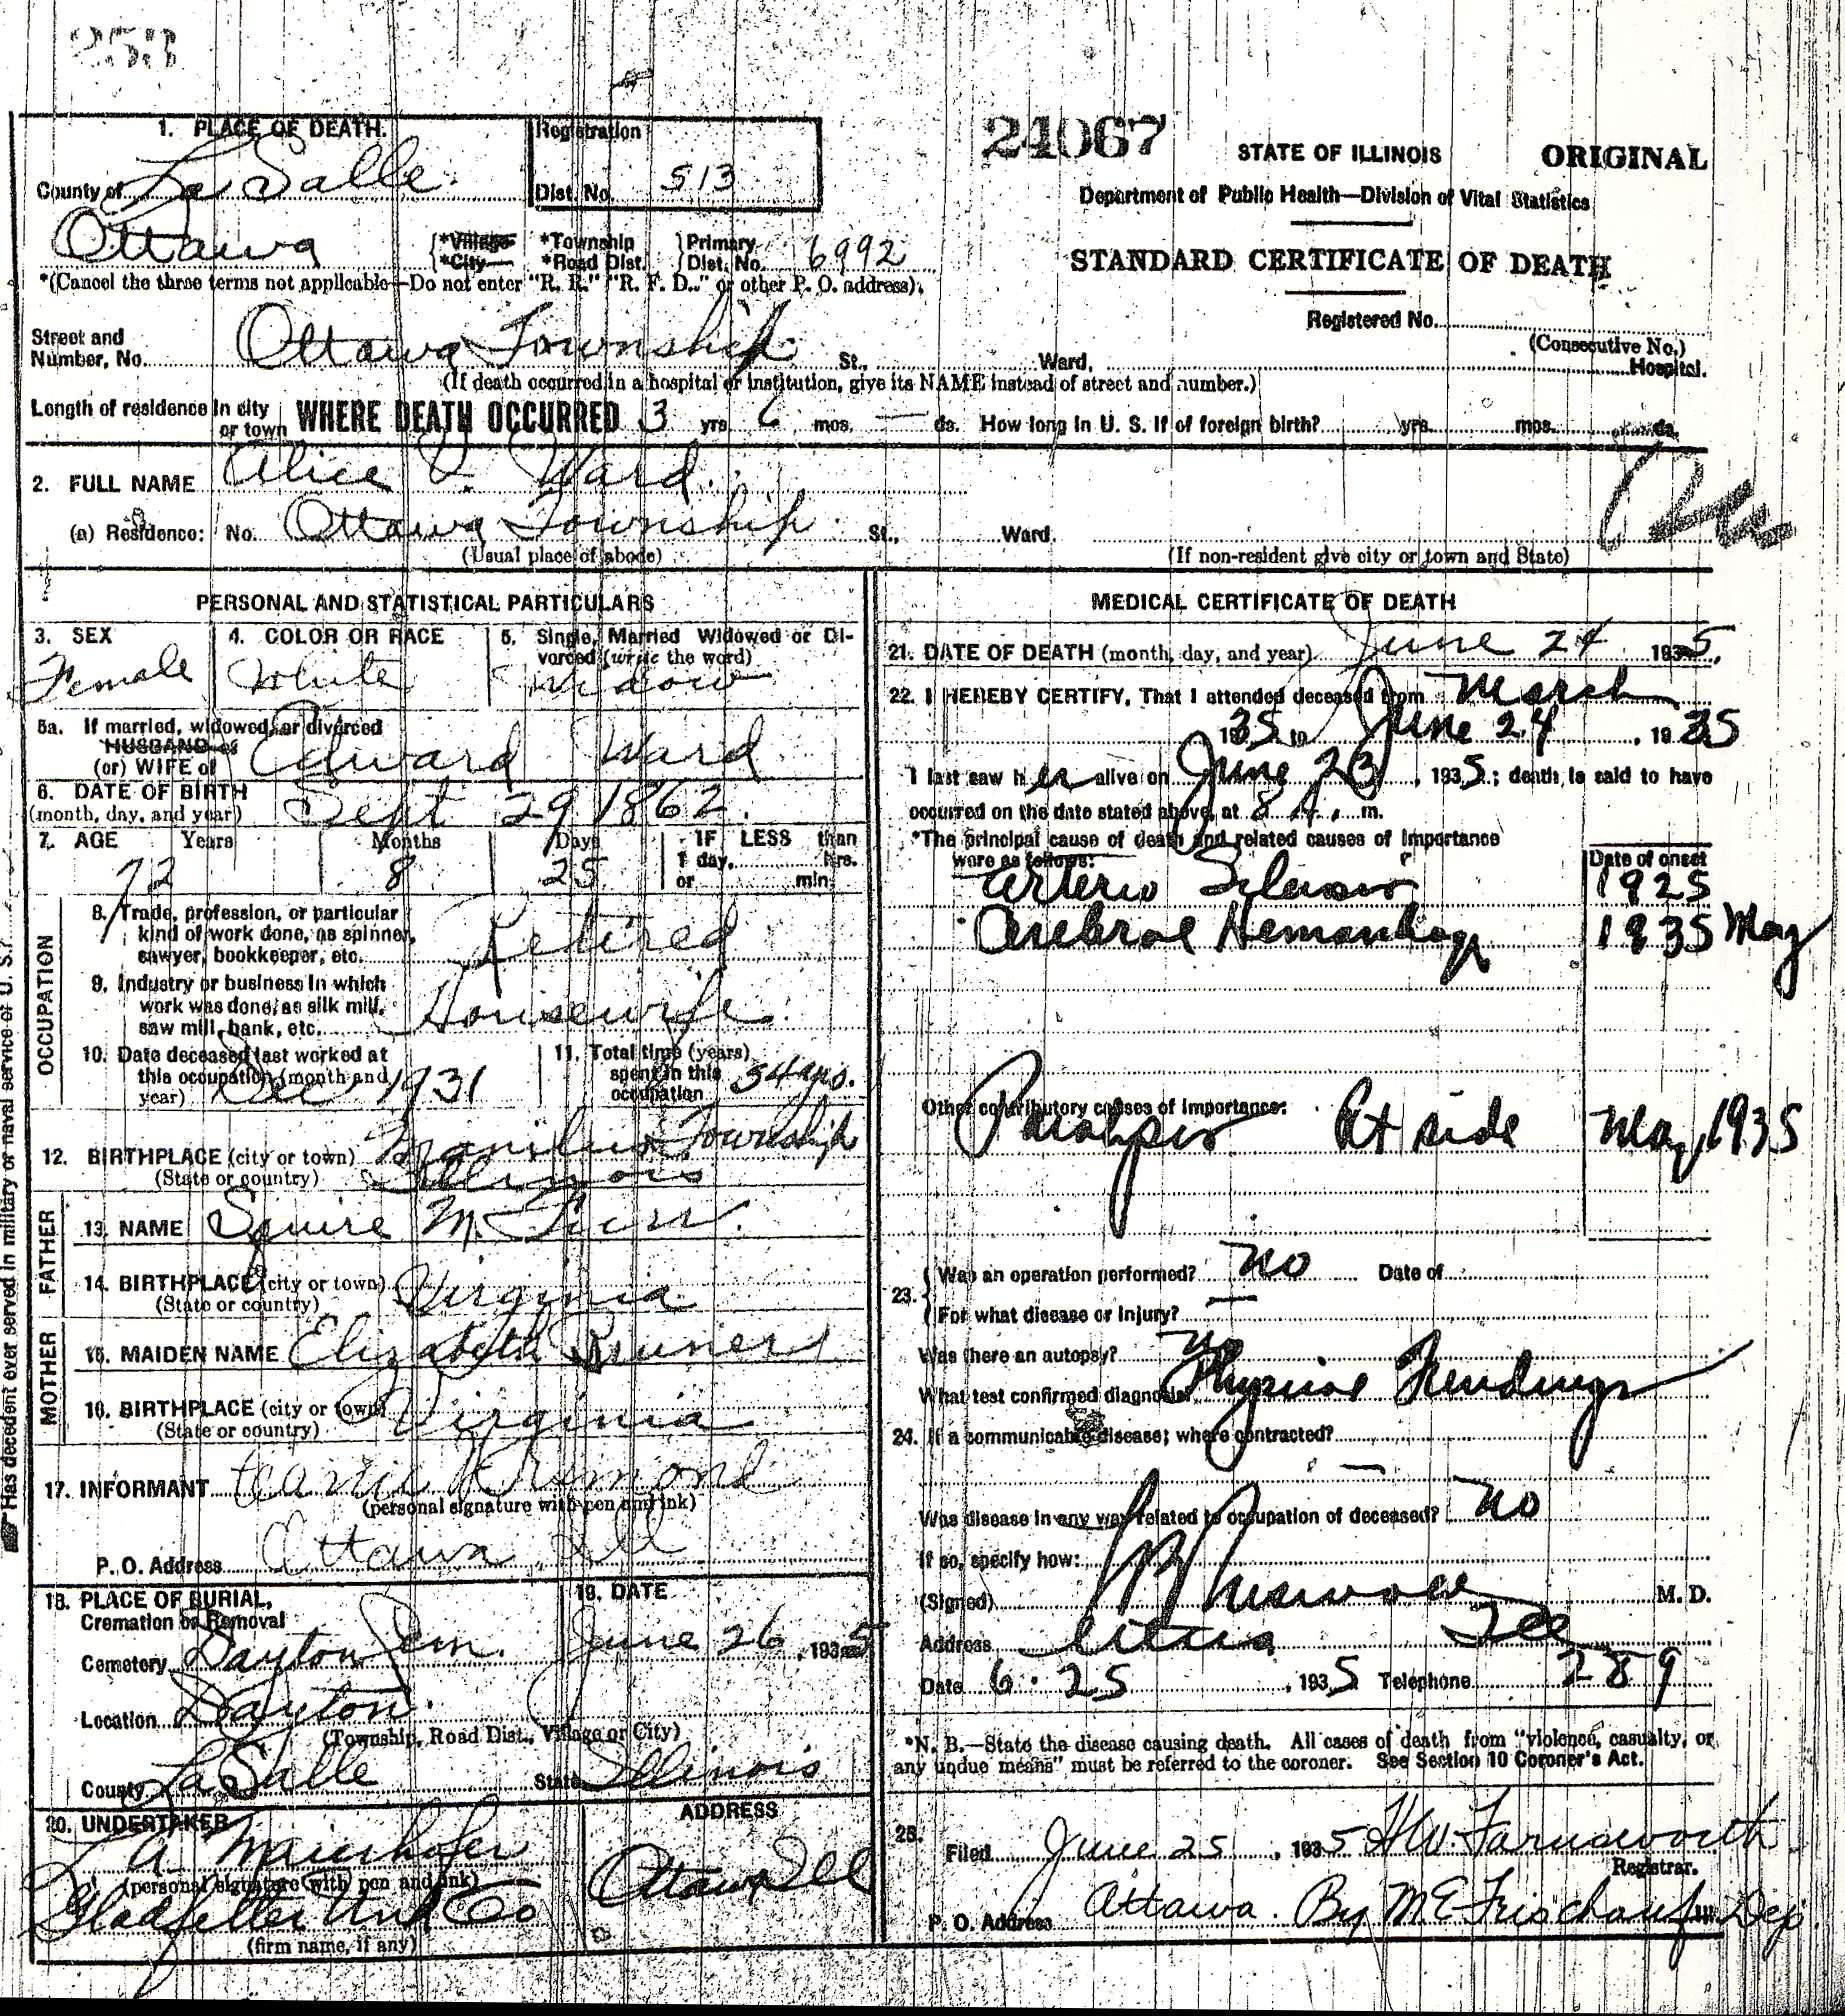 253
1. PLACE OF DEATH.
County of La Salle
Registration Dist. No. 513
24067
STATE OF ILLINOIS
ORIGINAL
Department of Public Health—Division of Vital Statistics
STANDARD CERTIFICATE OF DEATH
Ottawa {*Village *City *Township *Road Dist. } Primary Dist. No. 6992
*(Cancel the three terms not applicable—Do not enter "R. R." "R. F. D.." or other P. O. address).
Registered No.
(Consecutive No.)
Street and Number, No. Ottawa Township St., Ward, Hospital.
(If death occurred in a hospital or institution, give its NAME instead of street and number.)
Length of residence in city or town WHERE DEATH OCCURRED 3 yrs. 6 mos. — ds. How long in U. S. if of foreign birth? yrs. mos. ds.
2. FULL NAME Alice V. Ward.
(a) Residence: No. Ottawa Township St., Ward.
(Usual place of abode) (If non-resident give city or town and State)
PERSONAL AND STATISTICAL PARTICULARS
3. SEX Female
4. COLOR OR RACE White
5. Single, Married Widowed or Divorced (write the word) Widow
5a. If married, widowed, or divorced
HUSBAND of
(or) WIFE of Edward Ward
6. DATE OF BIRTH (month, day, and year) Sept 29 1862.
7. AGE Years 72 Months 8 Days 25 IF LESS than 1 day, hrs. or min.
OCCUPATION
8. Trade, profession, or particular kind of work done, as spinner, sawyer, bookkeeper, etc. Retired
9. Industry or business in which work was done, as silk mill, saw mill, bank, etc. Housewife.
10. Date deceased last worked at this occupation (month and year) Dec 1931
11. Total time (years) spent in this occupation 54 yrs.
12. BIRTHPLACE (city or town) Township
(State or country) Illinois
FATHER
13. NAME Squire M.
14. BIRTHPLACE (city or town) (State or country) Virginia
MOTHER
15. MAIDEN NAME Elizabeth Bruner
16. BIRTHPLACE (city or town) (State or country) Virginia
17. INFORMANT
(personal signature with pen and ink)
P. O. Address Ottawa, Ill
18. PLACE OF BURIAL, Cremation or Removal
Cemetery Dayton Cem.
19. DATE June 26, 1935
Location Dayton.
(Township, Road Dist., Village or City)
County La Salle State Illinois
20. UNDERTAKER
A. Maierhofer
(personal signature with pen and ink)
Gladfelter Und Co
(firm name, if any)
ADDRESS
Ottawa Ill
Has decedent ever served in military or naval service of U. S.?
MEDICAL CERTIFICATE OF DEATH
21. DATE OF DEATH (month, day, and year) June 24 1935.
22. I HEREBY CERTIFY, That I attended deceased from March
1935 to June 24, 1935
I last saw her alive on June 23, 1935; death is said to have
occurred on the date stated above, at 8 A. m.
*The principal cause of death and related causes of importance were as follows:
Date of onset
Arterio 1925
Cerebral Hemorrhage 1935 May
Other contributory causes of importance:
Paralysis Rt side May, 1935
23. Was an operation performed? No Date of
For what disease or injury? —
Was there an autopsy? No
What test confirmed diagnosis? Physical Findings
24. If a communicable disease; where contracted?
—
Was disease in any way related to occupation of deceased? No
If so, specify how:
(Signed) M. D.
Address Ill
Date 6 · 25, 1935 Telephone 289
*N. B.—State the disease causing death. All cases of death from "violence, casualty, or any undue means" must be referred to the coroner. See Section 10 Coroner's Act.
25. Filed June 25, 1935 H W Farnsworth
Registrar.
P. O. Address Ottawa. By M E Frischauf Dep.